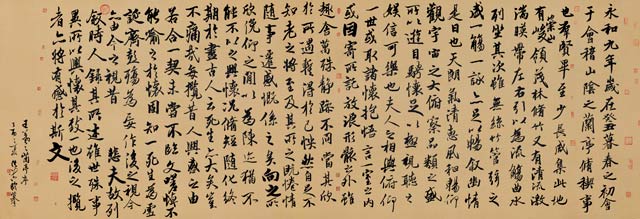 永和九年歲在癸丑暮春之初會
于會稽山陰之蘭亭脩禊事
也群賢畢至少長咸集此地
有崇山峻領茂林脩竹又有清流激
湍暎帶左右引以為流觴曲水
列坐其次雖無絲竹管弦之盛
一觴一詠亦足以暢敘幽情
是日也天朗氣清惠風和暢仰
觀宇宙之大俯察品類之盛
所以遊目騁懷足以極視聽之
娛信可樂也夫人之相與俯仰
一世或取諸懷抱悟言一室之內
或因寄所託放浪形骸之外雖
趣舍萬殊靜躁不同當其欣
於所遇暫得於己怏然自足不
知老之將至及其所之既惓情
隨事遷感慨係之矣向之所
欣俛仰之間以為陳迹猶不
能不以之興懷況脩短隨化終
期於盡古人云死生亦大矣豈
不痛哉每攬昔人興感之由
若合一契未嘗不臨文嗟悼不
能喻之於懷固知一死生為虛
誕齊彭殤為妄作後之視今
亦由今之視昔 悲夫故列
敘時人錄其所述雖世殊事
異所以興懷其致一也後之攬
者亦將有感於斯文
王羲之蘭亭序